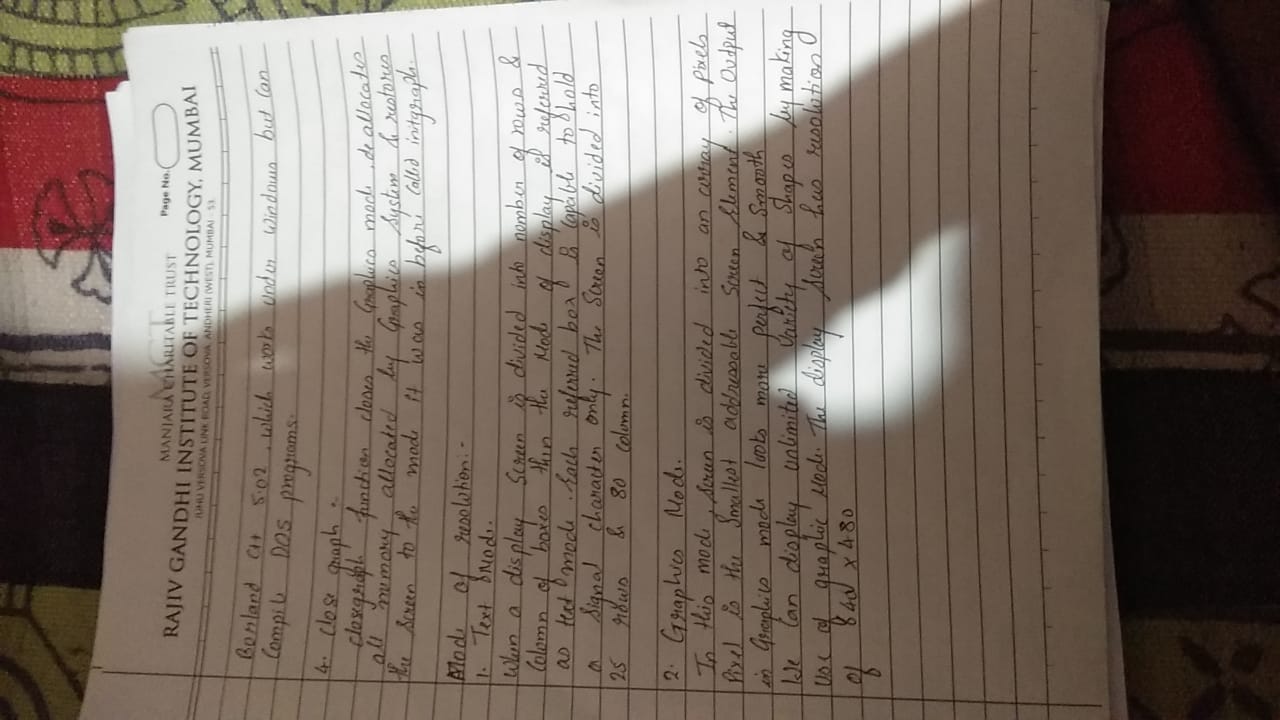 MANJARA CHARITABLE TRUST
Page No.
RAJIV GANDHI INSTITUTE OF TECHNOLOGY, MUMBAI
JUHU VERSOVA LINK ROAD, VERSOVA, ANDHERI (WEST), MUMBAI - 53
Borland C++ 5.02, which works under windows but can
Compile DOS programs.
4. Close graph :-
closegraph function closes the Graphics mode, deallocates
all memory allocated by Graphics System & restores
the screen to the mode it was in before called initgraph.
Mode of resolution:-
1. Text Mode.
When a display Screen is divided into number of rows &
Column of boxes then the Mode of display is referred
as text mode. Each referred box is Capable to hold
a Signal character only. The Screen is divided into
25 rows & 80 column.
2. Graphics Mode.
In this mode, Screen is divided into an array of Pixels
Pixel is the Smallest addressable Screen Element. The Output
in Graphics mode looks more perfect & Smooth
We Can display unlimited Variety of Shapes by making
Use of graphic Mode. The display Screen has resolution
of 840 x 480